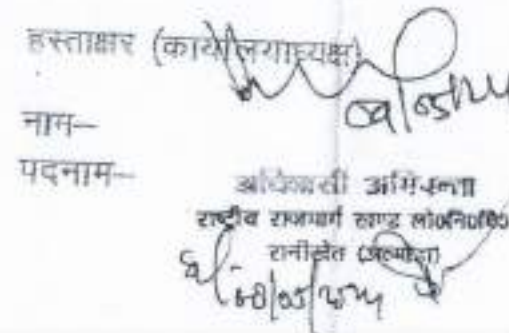 हस्ताक्षर (कार्यालयाध्यक्ष)
नाम—
पदनाम—
अधिशासी अभियन्ता
राष्ट्रीय राजमार्ग खण्ड लो०नि०वि०
रानीखेत (अल्मोड़ा)